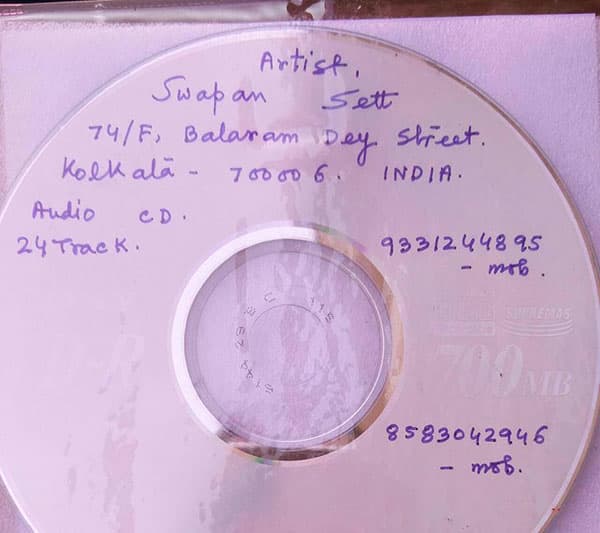 Artist,
Swapan Sett
74/F, Balaram Dey Street.
Kolkata - 700006. INDIA.
Audio CD.
24 Track.
9331244895
- mob.
SUPREMAS
700MB
8583042946
- mob.